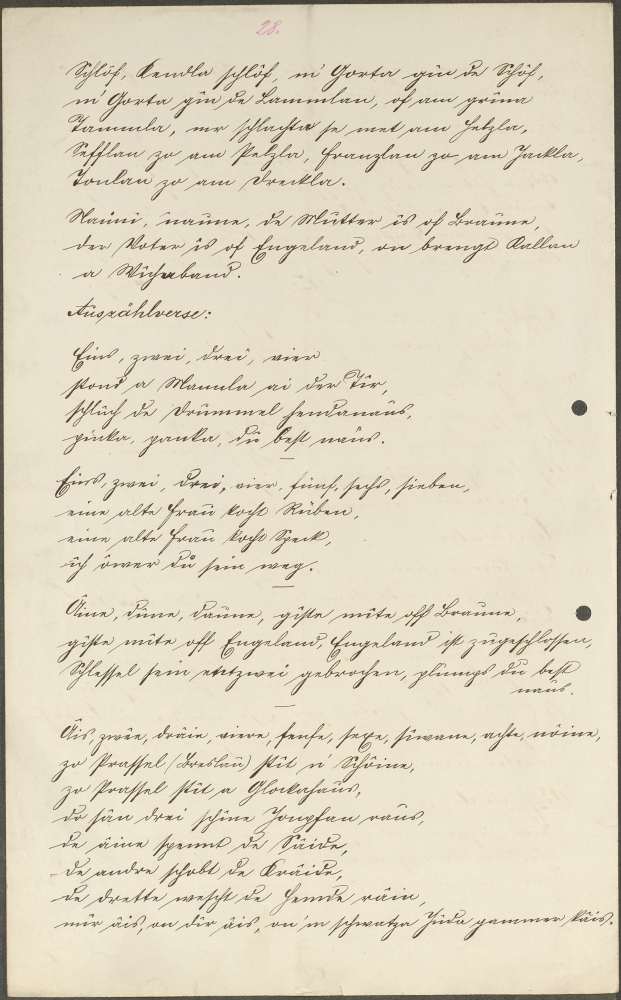 28.
Schlôf, Kendla schlôf, ei Gorta gin de Schôf,
ei Gorta gin de Lammlan, of am grina
Tannla, mr schlachta se met am Hetzla,
Sefflan zo am Pelzla, Franzlan zo am Jackla,
Tonlan zo am Dreckla.
Nauni, naune, de Mutter is of Braune,
der Voter is of Engeland, on brengt Kallan
a Wicheband.
Auszählverse:
Eins, zwei, drei, vier
stond a Mannla ai der Tir,
schluch de Drummel hendanaus,
pinka, panka, du best naus.
Eins, zwei, drei, vier, fünf, sechs, sieben,
eine alte Frau kocht Rüben,
eine alte Frau kocht Speck,
ich ower du sein weg.
Äine, düne, daune, giste mite off Braune,
giste mite off Engeland, Engeland ist zugeschlossen,
Schlessel sein entzwei gebrochen, plumps du best
naus.
Äis, zwee, dräie, viere, fenfe, sexe, siwane, achte, nöine,
zo Prassel (Breslau) stit n' Schöine,
zo Prassel stit a Glockahaus,
do sän drei schine Jongfan raus,
de äine spennt de Säide,
de andre schobt de Kräide,
de drette wescht de Hemde räin,
mir äis, on dir äis, on'm schwatza Juda gammer käis.